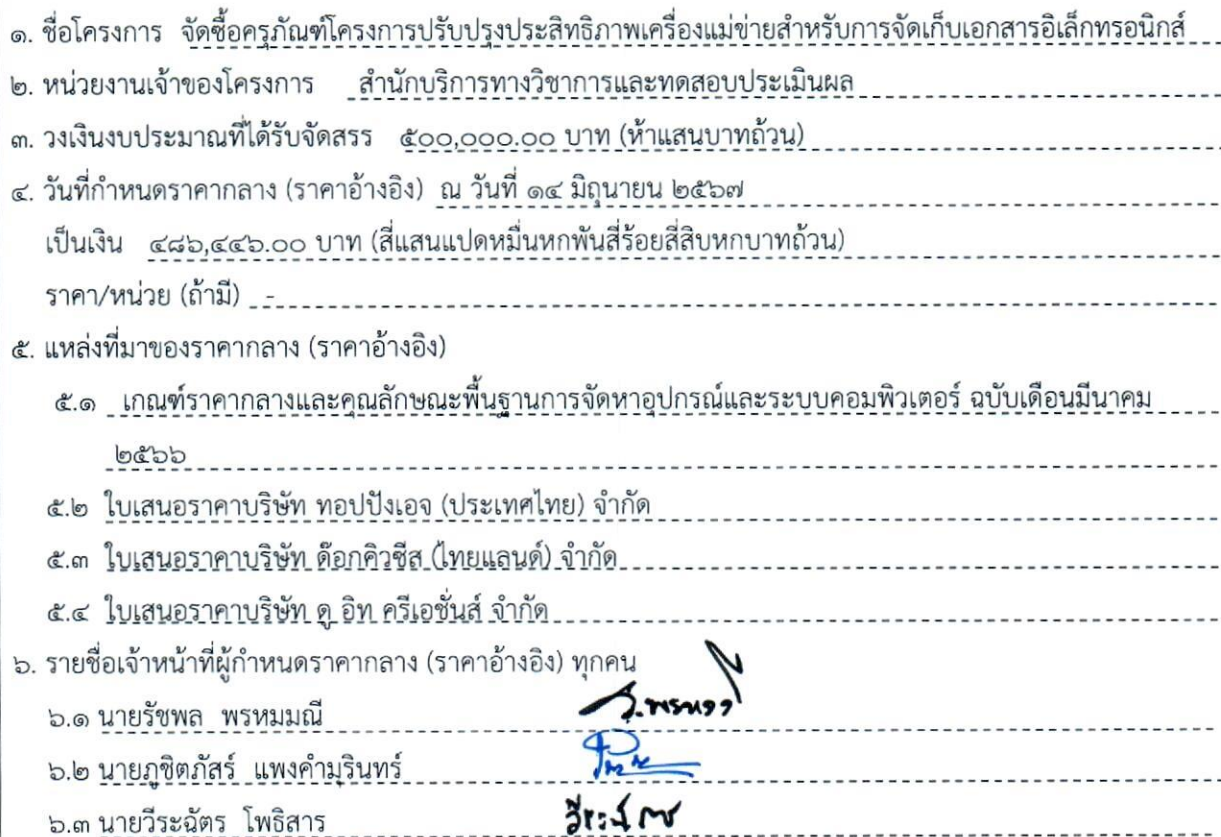 ๑. ชื่อโครงการ จัดซื้อครุภัณฑ์โครงการปรับปรุงประสิทธิภาพเครื่องแม่ข่ายสำหรับการจัดเก็บเอกสารอิเล็กทรอนิกส์
๒. หน่วยงานเจ้าของโครงการ สำนักบริการทางวิชาการและทดสอบประเมินผล
๓. วงเงินงบประมาณที่ได้รับจัดสรร ๕๐๐,๐๐๐.๐๐ บาท (ห้าแสนบาทถ้วน)
๔. วันที่กำหนดราคากลาง (ราคาอ้างอิง) ณ วันที่ ๑๔ มิถุนายน ๒๕๖๗
เป็นเงิน ๔๘๖,๔๔๖.๐๐ บาท (สี่แสนแปดหมื่นหกพันสี่ร้อยสี่สิบหกบาทถ้วน)
ราคา/หน่วย (ถ้ามี) -
๕. แหล่งที่มาของราคากลาง (ราคาอ้างอิง)
๕.๑ เกณฑ์ราคากลางและคุณลักษณะพื้นฐานการจัดหาอุปกรณ์และระบบคอมพิวเตอร์ ฉบับเดือนมีนาคม
๒๕๖๖
๕.๒ ใบเสนอราคาบริษัท ทอปปังเอจ (ประเทศไทย) จำกัด
๕.๓ ใบเสนอราคาบริษัท ด๊อกคิวซีส (ไทยแลนด์) จำกัด
๕.๔ ใบเสนอราคาบริษัท ดู อิท ครีเอชั่นส์ จำกัด
๖. รายชื่อเจ้าหน้าที่ผู้กำหนดราคากลาง (ราคาอ้างอิง) ทุกคน
๖.๑ นายรัชพล พรหมมณี
๖.๒ นายภูชิตภัสร์ แพงคำมุรินทร์
๖.๓ นายวีระฉัตร โพธิสาร